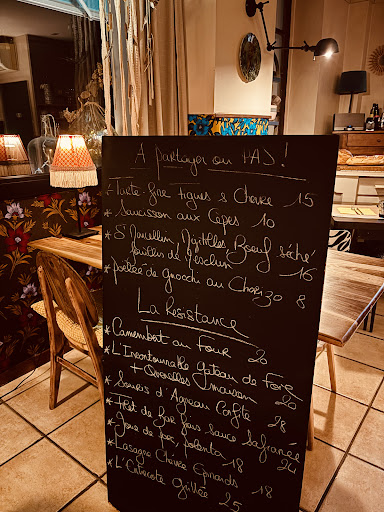 A partager ou PAS !
* Tarte fine figues & Chèvre 15
* Saucisson aux Cèpes 10
* St Marcellin, Myrtilles, Boeuf séché
feuilles de Mesclun 16
* Poêlée de gnocchi au Chorizo 8
La Résistance
* Camembert au Four 20
* L'Incontournable Gâteau de Foie
+ Quenelles maison 20
* Souris d'Agneau Confite 28
* Filet de Bar jus Sauce Safranée 24
* Joue de porc, polenta
* Lasagne Chèvre Epinards 18
18
* L'Entrecôte Grillée 25